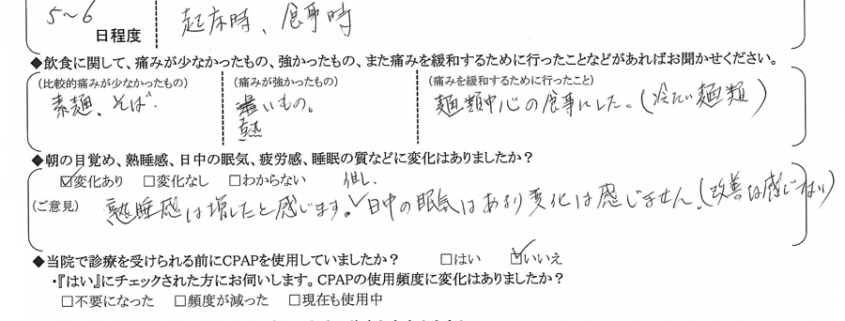 5～6
日程度
起床時、食事時
◆飲食に関して、痛みが少なかったもの、強かったもの、また痛みを緩和するために行ったことなどがあればお聞かせください。
（比較的痛みが少なかったもの）
素麺、そば。
（痛みが強かったもの）
熱いもの。
（痛みを緩和するために行ったこと）
麺類中心の食事にした。（冷たい麺類）
◆朝の目覚め、熟睡感、日中の眠気、疲労感、睡眠の質などに変化はありましたか？
☑変化あり □変化なし □わからない
（ご意見）
熟睡感は増したと感じます。但し、日中の眠気はあまり変化は感じません。（改善は感じない）
◆当院で診療を受けられる前にCPAPを使用していましたか？ □はい ☑いいえ
・『はい』にチェックされた方にお伺いします。CPAPの使用頻度に変化はありましたか？
□不要になった □頻度が減った □現在も使用中